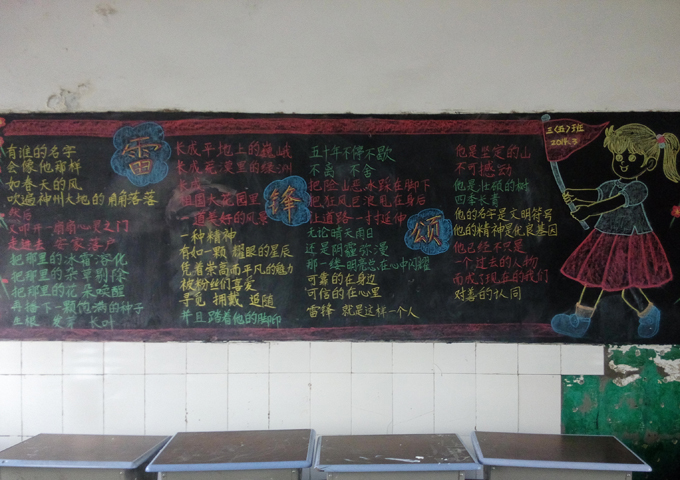 雷
锋
颂
有谁的名字
会像他那样
如春天的风
吹遍神州大地的角角落落
然后
又叩开一扇扇心灵之门
走进去 安家落户
把那里的冰霜溶化
把那里的杂草剔除
把那里的花朵唤醒
再播下一颗饱满的种子
生根 发芽 长叶
长成平地上的巍峨
长成荒漠里的绿洲
长成
祖国大花园里
一道美好的风景
一种精神
有如一颗耀眼的星辰
凭着崇高而平凡的魅力
被粉丝们喜爱
寻觅 拥戴 追随
并且踏着他的脚印
五十年不停不歇
不离 不舍
把险山恶水踩在脚下
把狂风巨浪甩在身后
让道路一寸寸延伸
无论晴天雨日
还是阴霾弥漫
那一缕明亮总在心中闪耀
可靠的在身边
可信的在心里
雷锋 就是这样一个人
他是坚定的山
不可撼动
他是壮硕的树
四季长青
他的名字是文明符号
他的精神是优良基因
他已经不只是
一个过去的人物
而成了现在的我们
对善的认同
三(五)班
2014.3